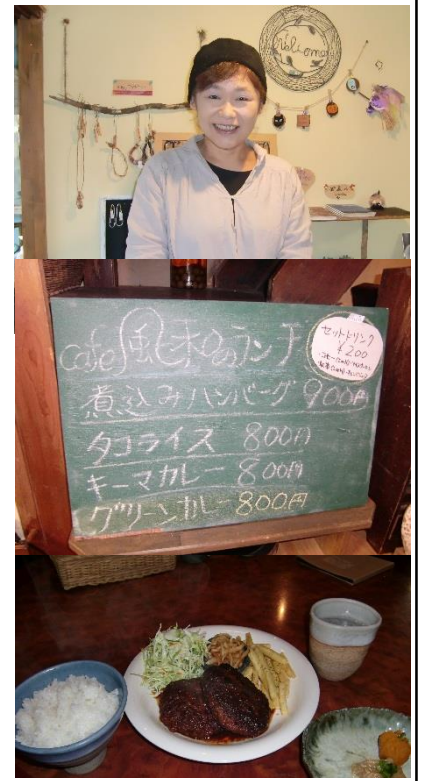 Welcome
cafe風と木のランチ
セットドリンク
￥200
煮込みハンバーグ 900円
タコライス 800円
キーマカレー 800円
グリーンカレー 800円